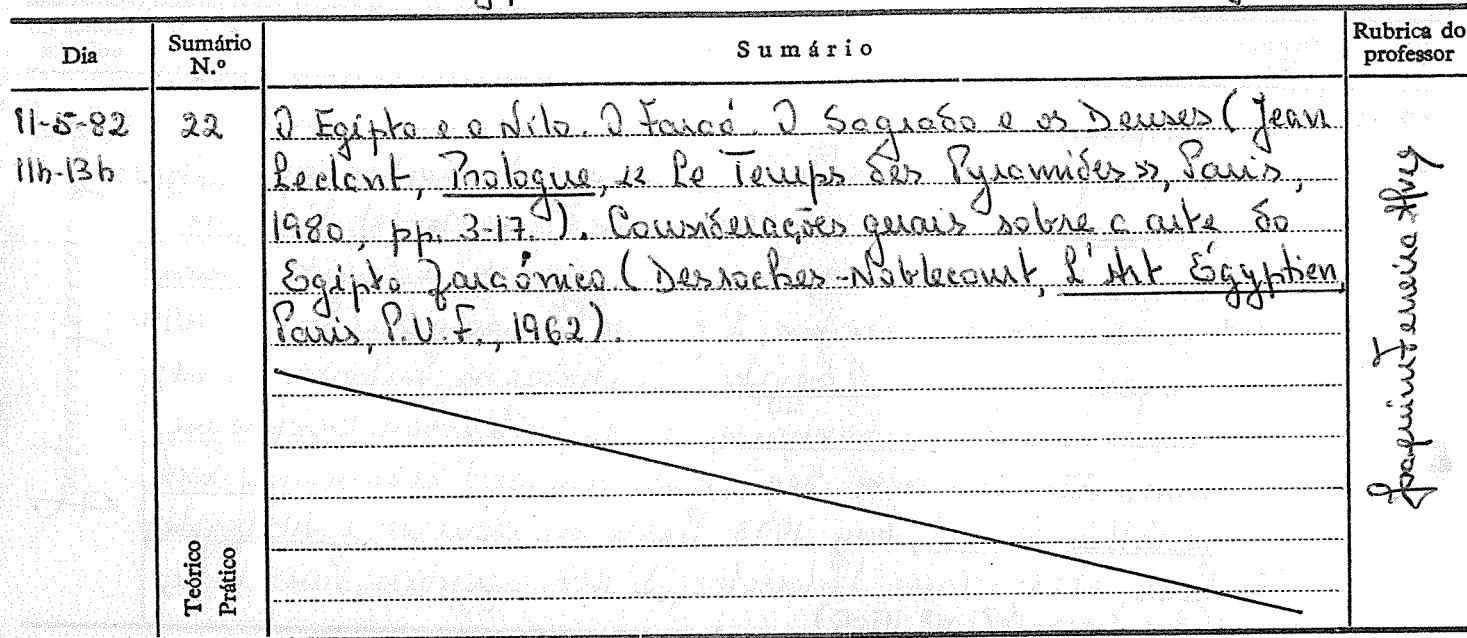 Dia
Sumário N.º
Sumário
Rubrica do professor
11-5-82
11h-13h
22
O Egipto e o Nilo. O Faraó. O Sagrado e os Deuses (Jean
Leclant, Prologue, «Le Temps des Pyramides», Paris,
1980, pp. 3-17.). Considerações gerais sobre a arte do
Egipto faraónico (Desroches-Noblecourt, L'Art Égyptien,
Paris, P.U.F., 1962).
Teórico
Prático
Joaquim Ferreira Alves